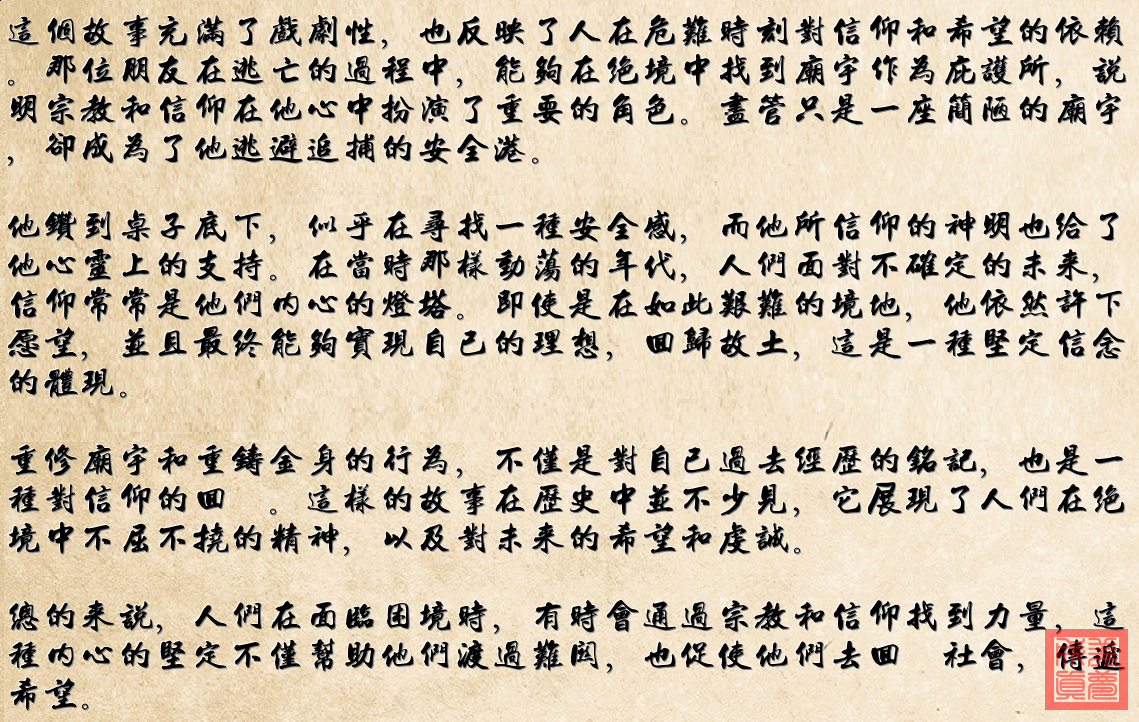 這個故事充滿了戲劇性，也反映了人在危難時刻對信仰和希望的依賴
。那位朋友在逃亡的過程中，能夠在絕境中找到廟宇作為庇護所，說
明宗教和信仰在他心中扮演了重要的角色。盡管只是一座簡陋的廟宇
，卻成為了他逃避追捕的安全港。
他鑽到桌子底下，似乎在尋找一種安全感，而他所信仰的神明也給了
他心靈上的支持。在當時那樣動蕩的年代，人們面對不確定的未來，
信仰常常是他們內心的燈塔。即使是在如此艱難的境地，他依然許下
愿望，並且最終能夠實現自己的理想，回歸故土，這是一種堅定信念
的體現。
重修廟宇和重鑄金身的行為，不僅是對自己過去經歷的銘記，也是一
種對信仰的回　。這樣的故事在歷史中並不少見，它展現了人們在絕
境中不屈不撓的精神，以及對未來的希望和虔誠。
總的來說，人們在面臨困境時，有時會通過宗教和信仰找到力量，這
種內心的堅定不僅幫助他們渡過難關，也促使他們去回　社會，傳遞
希望。